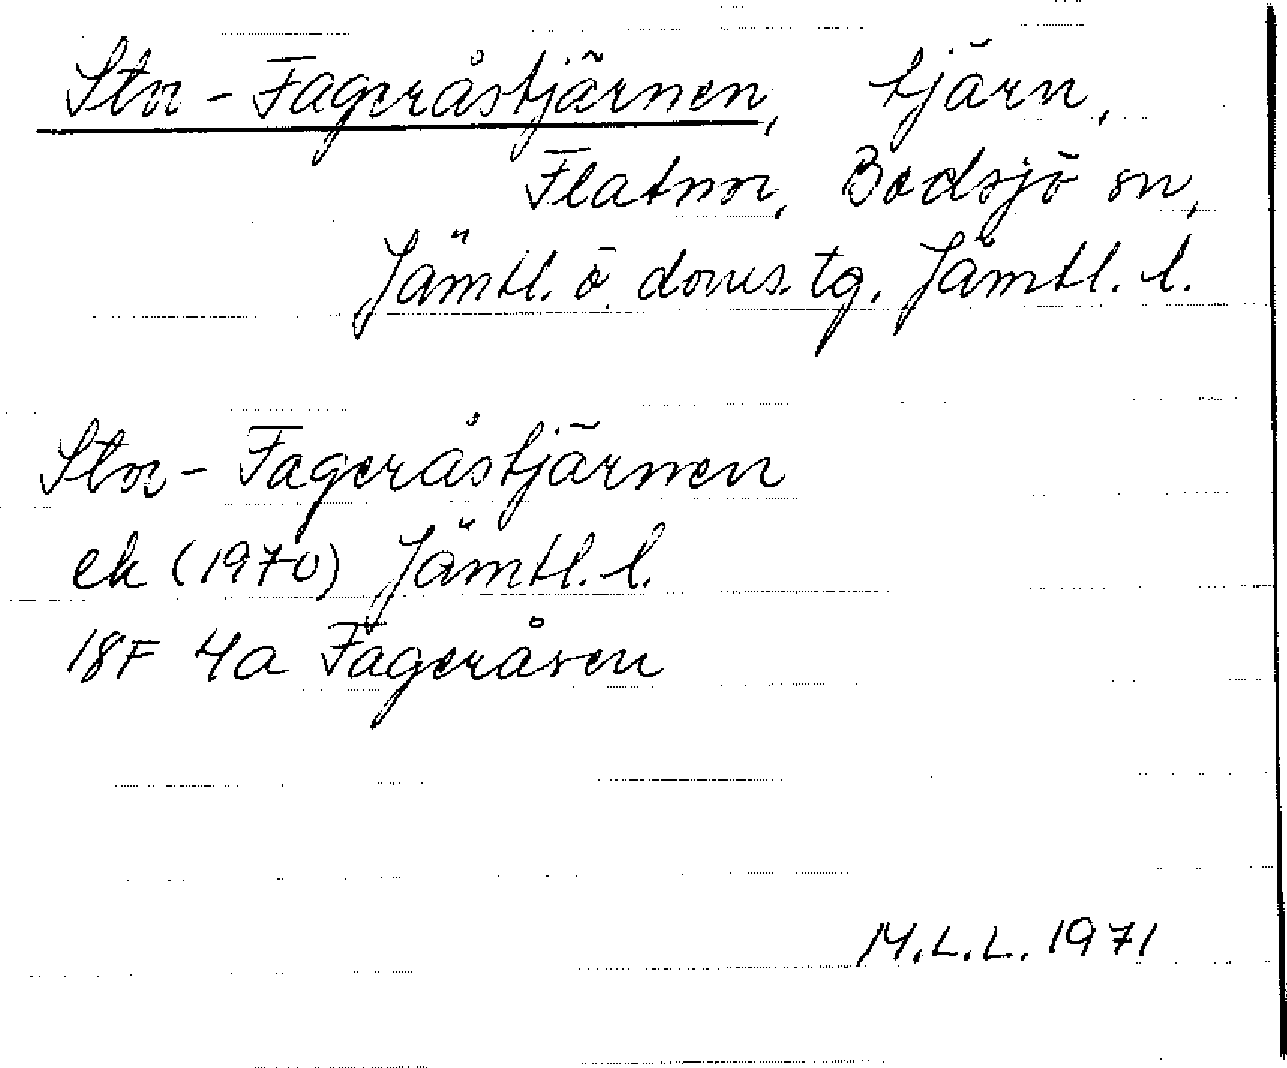 Stor-Fageråstjärnen, tjärn,
Flatnor, Bodsjö sn,
Jämtl. ö. doms. tg. Jämtl. l.
Stor-Fageråstjärnen
ek (1970) Jämtl. l.
18F 4a Fageråsen
M.L.L. 1971